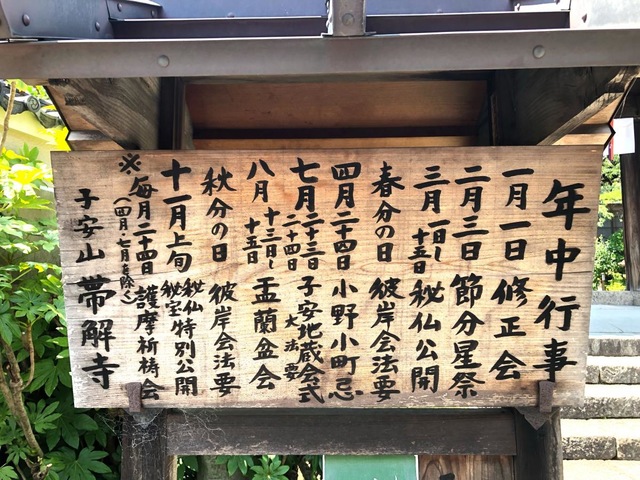 年中行事
一月一日 修正会
二月三日 節分星祭
三月一日~十五日 秘仏公開
春分の日 彼岸会法要
四月二十四日 小野小町忌
七月二十三日二十四日 子安地蔵会式大法要
八月十三日~十五日 盂蘭盆会
秋分の日 彼岸会法要
十一月上旬 秘仏秘宝特別公開
※毎月二十四日(四月・七月を除く) 護摩祈祷会
子安山 帯解寺